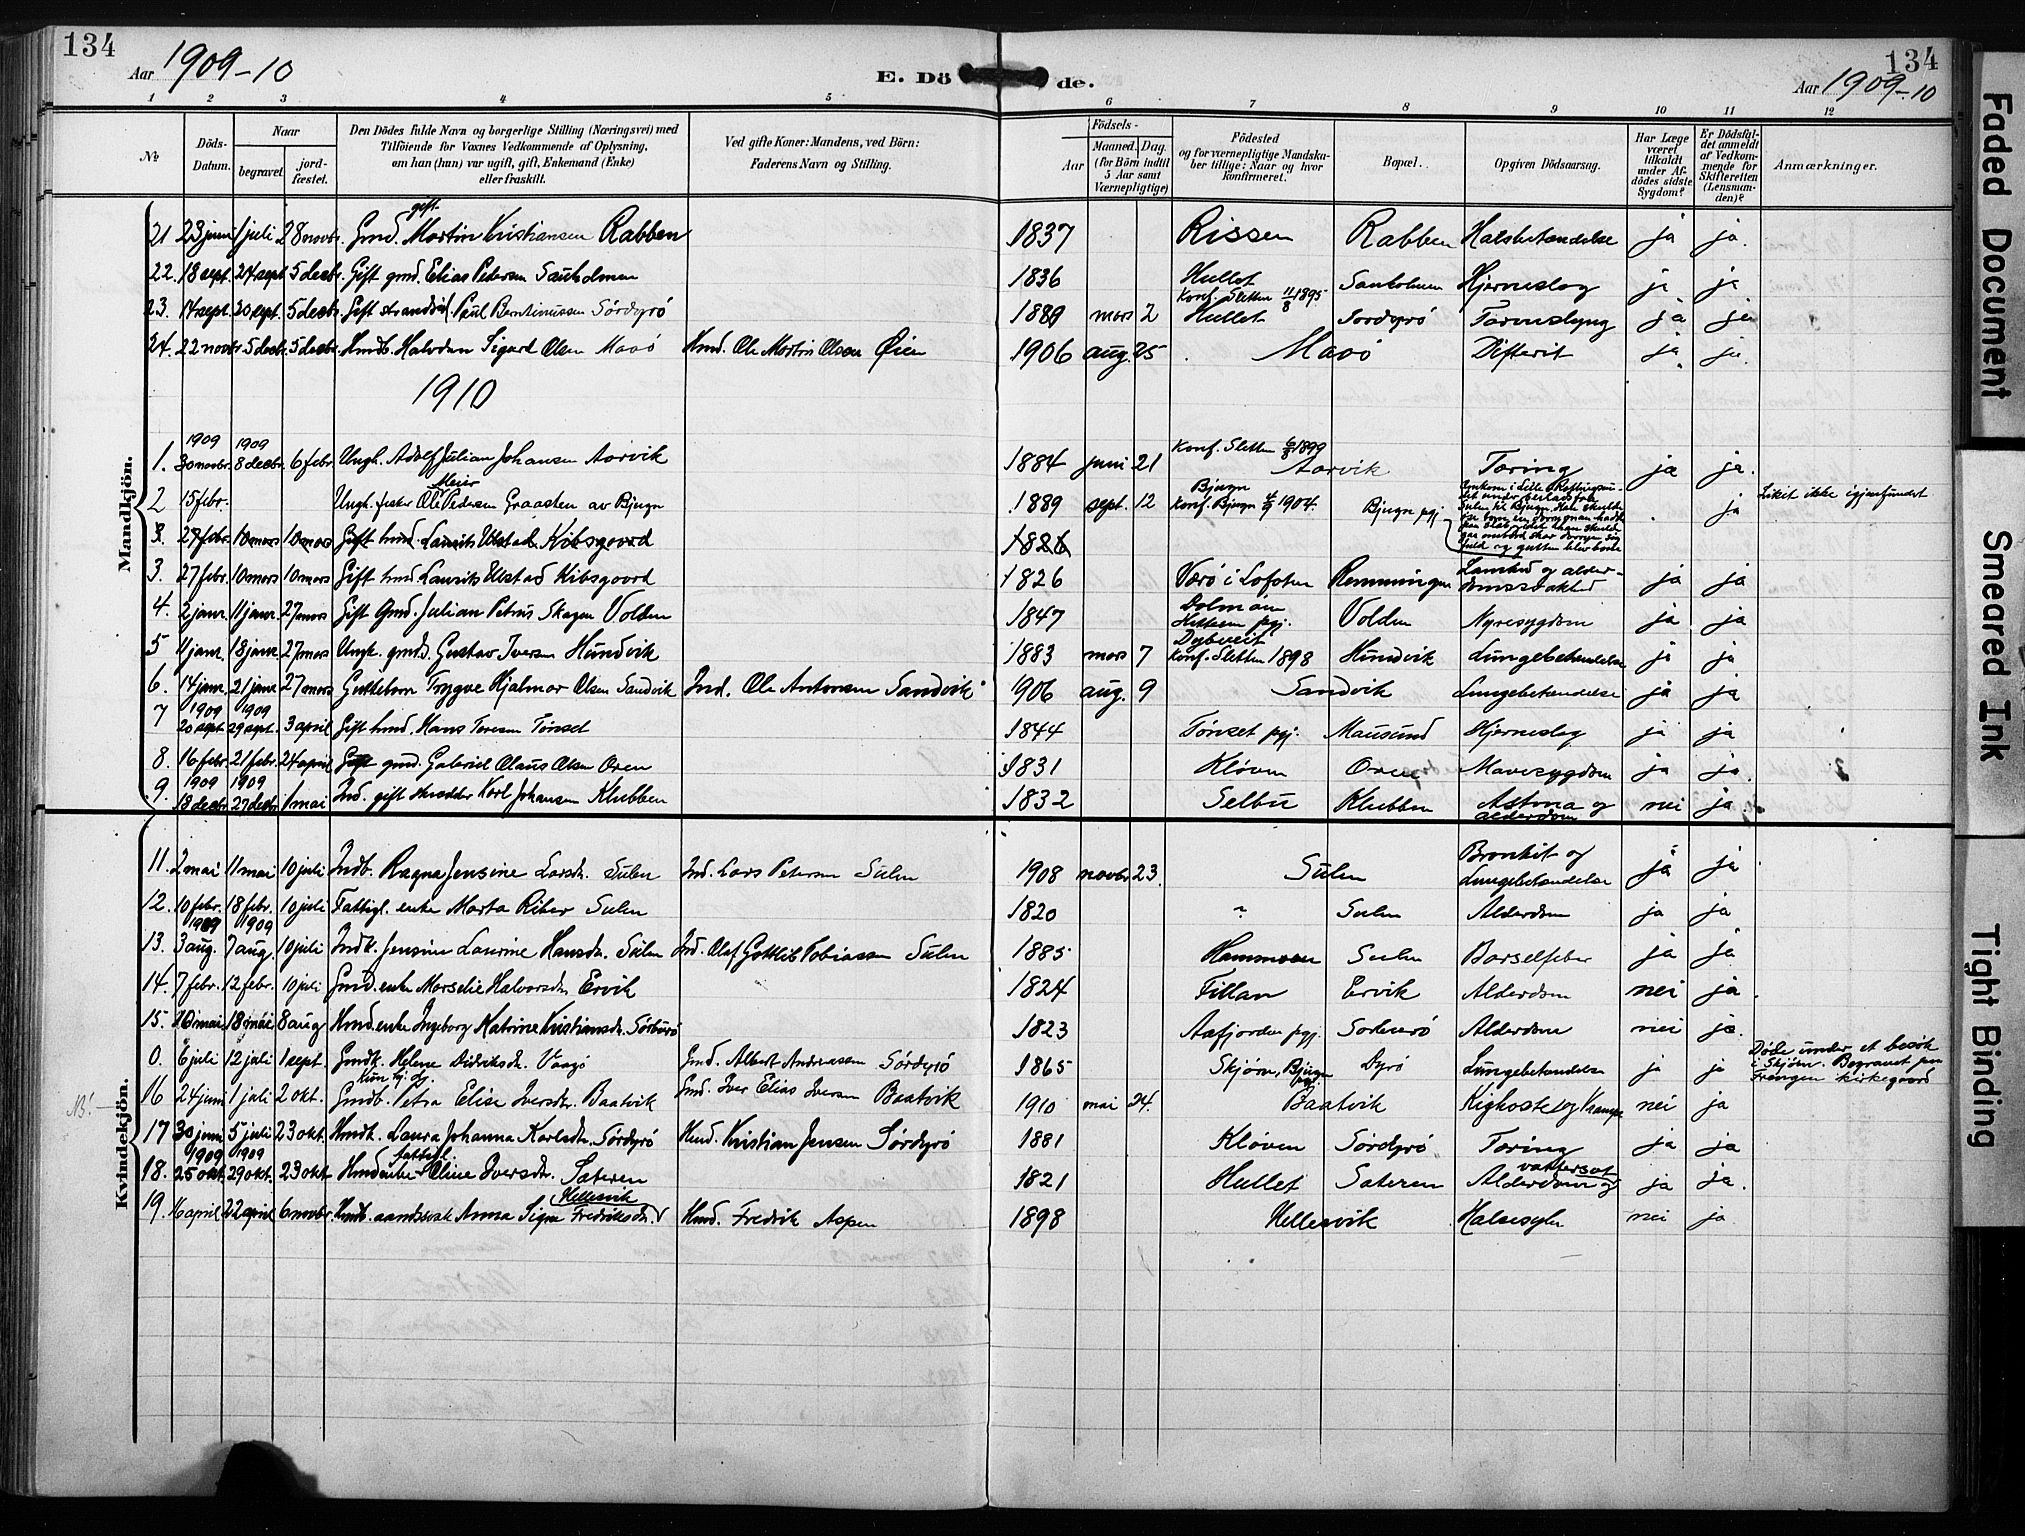 134
Aar 1909-10
E. Döde.
134
Aar 1909-10
1 2 3 4 5 6 7 8 9 10 11 12
No
Döds-Datum.
Naar
begravet
jord-fæstet.
Den Dödes fulde Navn og borgerlige Stilling (Næringsvei) med
Tilföiende for Voxnes Vedkommende af Oplysning,
om han (hun) var ugift, gift, Enkemand (Enke)
eller fraskilt.
Ved gifte Koner: Mandens, ved Börn:
Faderens Navn og Stilling.
Födsels-
Aar
Maaned. Dag.
(for Börn indtil
5 Aar samt
Værnepligtige)
Födested
og for værnepligtige Mandska-
ber tillige: Naar og hvor
konfirmeret.
Bopæl.
Opgiven Dödsaarsag.
Har Læge
været
tilkaldt
under Af-
dödes sidste
Sygdom?
Er Dödsfal-
det anmeldt
af Vedkom-
mende for
Skifteretten
(Lensman-
den)?
Anmærkninger.
Mandkjön.
21 23 juni 1 juli 28 novbr. Gmd. gift. Martin Kristiansen Rabben 1837 Rissen Rabben Halsbetændelse ja ja.
22. 18 sept. 24 sept 5 decbr. Gift gmd. Elias Pedersen Sauholmen 1836 Hullet Sauholmen Hjerneslag ja ja
23. 14 sept. 20 sept. 5 decbr. Gift Paul Berntinussen Sørdyrö 1889 mars 2 Konf. Sletten 11/8 1895 Hullet Sordyrö Tarmslyng ja ja
24. 22 novbr. 5 decbr. 5 decbr. Halvdan Sigurd Olsen Maaö Hmd. Ole Martin Olsen Øien 1906 aug. 25 Maaö Difterit ja ja.
1910
1. 1909 30 novbr. 1909 8 decbr. 6 febr. Ungk. Adolf Julian Johansen Aarvik 1884 juni 21 Konf. Sletten 1899 Aarvik Tæring ja ja.
2 15 febr. Ungk. fisker Ole Meier Pedersen Graasten av Bjugn 1889 sept. 12 Bjugn Konf. Bjugn 1904. Bjugn pgj. ja Liket ikke igjenfundet
3. 27 febr. 10 mars 10 mars Gift hmd. Laurits Ulstad Kibsgaard 1826
3. 27 febr. 10 mars 10 mars Gift hmd Laurits Ulstad Kibsgaard 1826 Værö i Lofoten og alder-domssvakhed ja ja
4. 2 janr. 11 janr. 27 mars Gift Gmd. Julian Petrus Skagen Volden 1847 Dolmöen Hitteren pgj. Volden Nyresygdom ja ja
5 11 janr. 18 janr. 27 mars Ungk. gmd. Gustav Iversen Hundvik 1883 mars 7 Konf. Sletten 1898 Hundvik Lungebetændelse ja ja
6. 14 janr. 21 janr 27 mars Guttebarn Trygve Hjalmar Olsen Sandvik Ind. Ole Antonsen Sandvik 1906 aug. 9 Sandvik Lungebetændelse ja ja
7 1909 20 sept. 1909 29 sept. 3 april Gift hmd. Hans Toresen Tønset 1844 Tønset pgj. Mausund Hjerneslag ja ja
8. 16 febr. 21 febr. 24 april gmd. Gabriel Olaus Olsen Oxen 1831 Kløven Oxen Mavesygdom ja ja
9. 1909 18 decbr 1909 27 decbr. 1 mai Ind. gift skrædder Karl Johansen Klubben 1832 Selbu Klubben Astma og alderdom nei ja
Kvindekjön.
11. 2 mai 11 mai 10 juli Indb. Ragna Jensine Larsdr. Sulen Ind. Lars Petersen Sulen 1908 novbr 23. Sulen Bronkit og Lungebetændelse ja ja
12. 10 febr. 18 febr. 10 juli Fattigl. enke Marta Riber Sulen 1820 ? Sulen Alderdom ja ja
13. 1909 3 aug. 1909 7 aug. 10 juli Indk. Jensine Laurine Hansdr. Sulen Ind. Olaf Gottlib Tobiassen Sulen 1885 Hammeren Sulen Barselfeber ja ja
14. 7 febr. 12 febr. 10 juli Gmd. enke Marselie Halvorsdr. Ervik 1824 Fillan Ervik Alderdom nei ja
15. 10 mai 18 mai 8 aug Hmd. enke Ingeborg Katrine Kristiansdr. Sørburö 1823 Aafjorden pgj. Alderdom nei ja.
0. 6 juli 12 juli 1 sept. Gmdk. Helene Didriksdr. Vaagö Gmd. Albert Andreassen Sördyrö 1865 Skjörn, Bjugn pgj. Dyrö Lungebetændelse ja ja Døde under et besøk i Skjörn. Begravet paa Frengen kirkegaard
NB! 16 24 juni 1 juli 2 okt. Gmdb. Petra Elise Iversdr. Baatvik Gmd. Iver Elias Iversen Baatvik 1910 mai 24. Baatvik Kighoste og Krampe nei ja
17 30 juni 5 juli 23 okt. Hmdk. Laura Johanna Karlsdr. Sördyrö Hmd. Kristian Jensen Sördyrö 1881 Kløven Sördyrö Tæring ja ja
18. 1909 25 okt. 1909 29 okt. 23 okt. Hmdenke fattigl. Oline Iversdr. Sæteren 1821 Hullet Sæteren Alderdom og vattersot ja ja.
19. 16 april 22 april 6 novbr. Hmdb. aandssvak Anna Signe Fredriksdr. Hellesvik Hmd. Fredrik Aspen 1898 Hellesvik Halssyke nei ja
Faded Document
Smeared Ink
Tight Binding